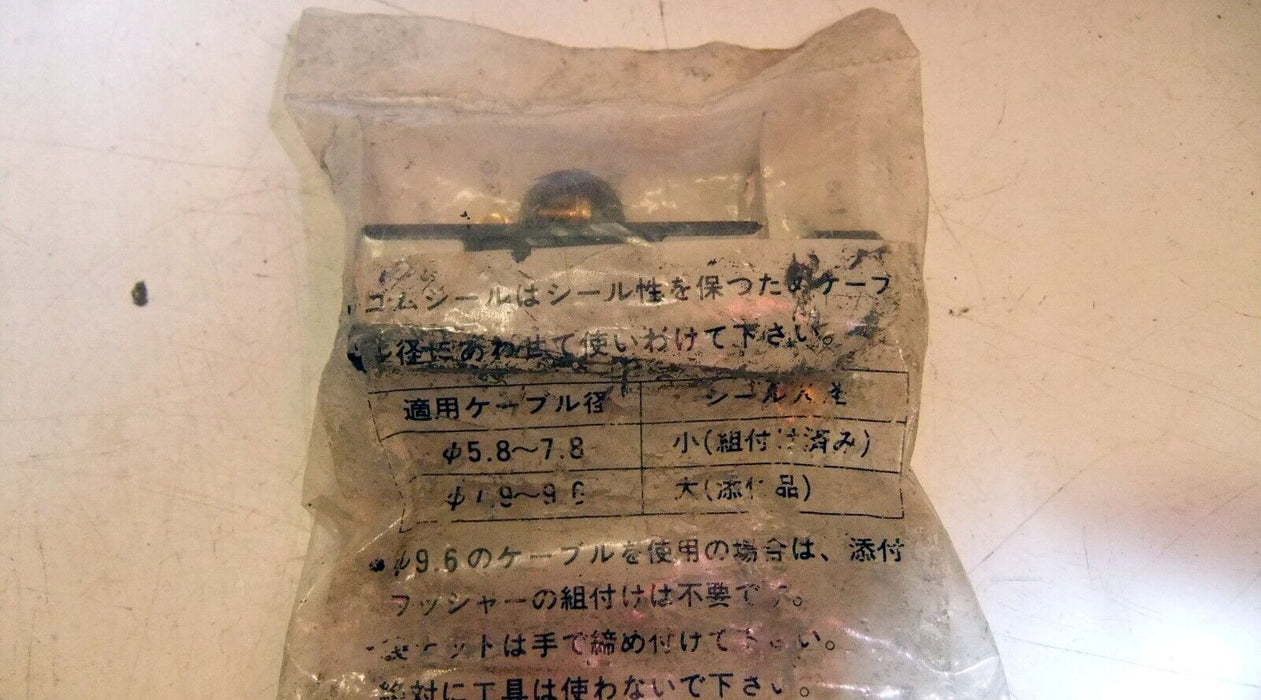 ゴムシールはシール性を保つためケーブ
ル径にあわせて使いわけて下さい。
適用ケーブル径 シール
φ5.8〜7.8 小(組付け済み)
φ7.9〜9.6 大(添付品)
•φ9.6のケーブルを使用の場合は、添付
ワッシャーの組付けは不要です。
ナットは手で締め付けて下さい。
絶対に工具は使わないで下さい。